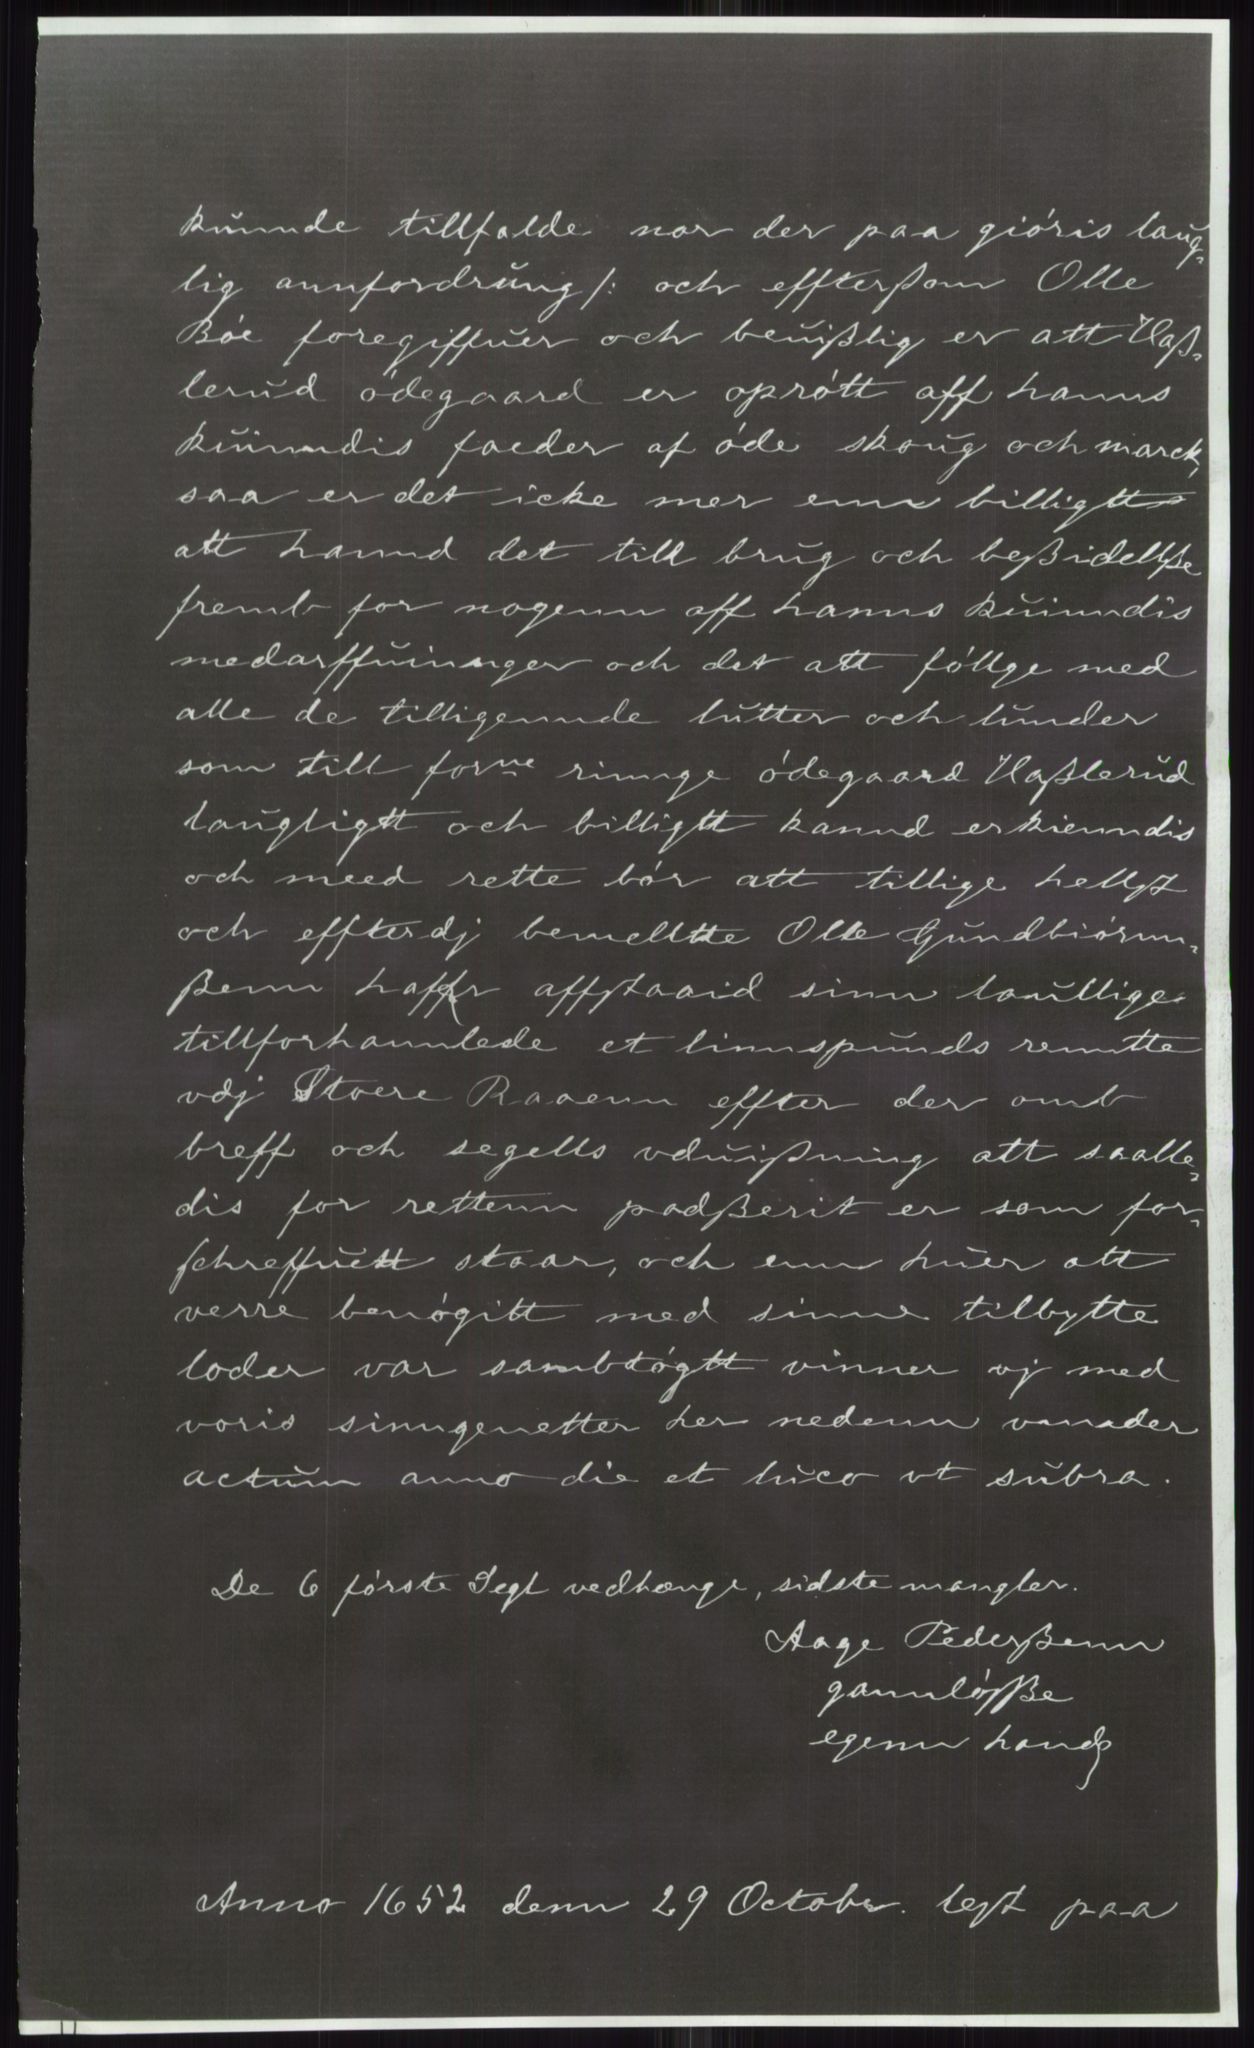 kuunde tillfalde nor der paa gióris laug-
lig annfordrung /: och effterßom Olle
Bóe foregiffuer och beuißlig er att Haß-
lerud ódegaard er oprótt aff hanns
kuinndis faeder af óde skoug och marck,
saa er det icke mer enn billigtt
att hannd det till brug och beßidellße
fremb for nogenn aff hanns kuinndis
medarffuinnger och det att fóllge med
alle de tilligennde lutter och lunder
som till forne rinnge ódegaard Haßlerud
laugligtt och billigtt kannd erkienndis
och meed rette bór att tillige hellst
och effterdj bemelltte Olle Gundbiórnn-
ßenn haffr affstaaid sinn laullige
tillforhanndlede et linnspunds renntte
vdj Stoere Raaenn effter der omb
breff och segells vduißning att saalle-
dis for rettenn padßerit er som for-
schreffuett staar, och enn huer att
verre benógitt med sinne tilbytte
loder var sambtógtt vinner vj med
voris sinngenetter her nedenn vnnder
actum anno die et luco vt subra.
De 6 fórste Segl vedhænge, sidste mangler.
Aage Pederßenn
gannlóßße
egenn hannd
Anno 1652 denn 29 Octobr. lest paa